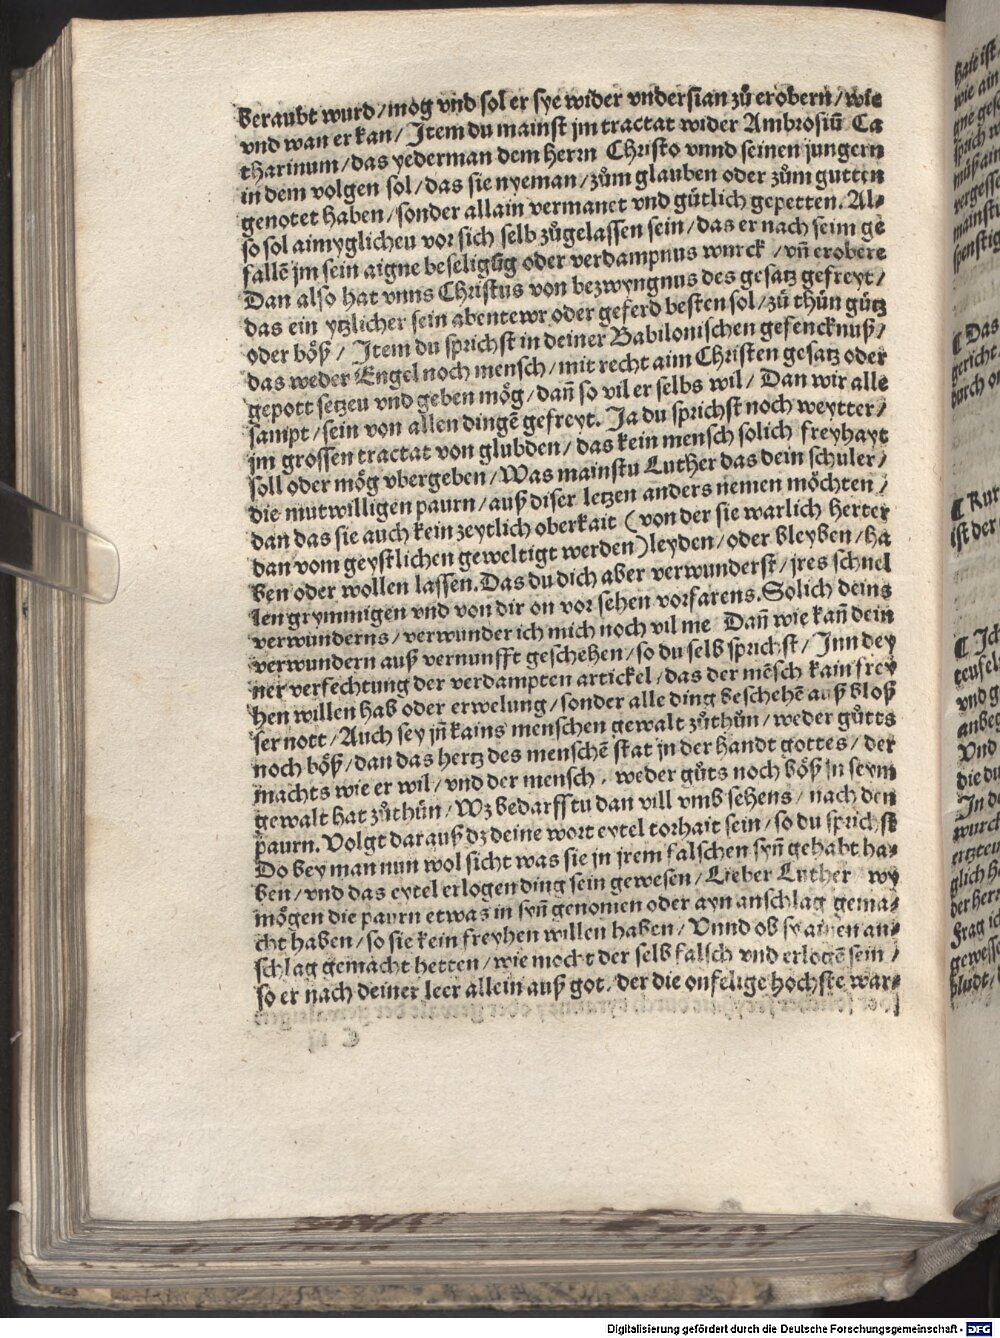 beraubt wurd/mog vnd sol er sye wider vndersian zů erobern/wie
vnd wan er kan/Item du mainst jm tractat wider Ambrosiū Ca
tharinum/das yederman dem herrn Christo vnnd seinen jungern
in dem volgen sol/das sie nyeman/zům glauben oder zům gutten
genotet haben/sonder allain vermanet vnd gütlich gepetten. Al⸗
so sol aimyglicheu vor sich selb zůgelassen sein/das er nach seim ge
fallē jm sein aigne beseligūg oder verdampnus wurck/vn̄ erobere
Dan also hat vnns Christus von bezwyngnus des gesatz gefreyt/
das ein ytzlicher sein abentewr oder geferd besten sol/zů thůn gůtz
oder böß/ Item du sprichst in deiner Babilonischen gefencknuß/
das weder Engel noch mensch/mit recht aim Christen gesatz oder
gepott setzeu vnd geben mög/dan̄ so vil er selbs wil/ Dan wir alle
sampt/sein von allen dingē gefreyt. Ja du sprichst noch weytter/
jm grossen tractat von glubden/das kein mensch solich freyhayt
soll oder mög vbergeben/Was mainstu Luther das dein schuler/
die mutwilligen paurn/auß diser letzen anders nemen möchten/
dan das sie auch kein zeytlich oberkait (von der sie warlich herter
dan vom geystlichen geweltigt werden)leyden/oder bleyben/ha
ben oder wollen lassen.Das du dich aber verwunderst/jres schnel
len grymmigen vnd von dir on vor sehen vorfarens.Solich deins
verwunderns/verwunder ich mich noch vil me Dan̄ wie kan̄ dein
verwundern auß vernunfft geschehen/so du selb sprichst/Inn dey
ner verfechtung der verdampten artickel/das der mēsch kain frey
hen willen hab oder erwelung/sonder alle ding beschehē auß bloß
ser nott/Auch sey jn̄ kains menschen gewalt zůthůn/weder gůtts
noch böß/dan das hertz des menschē stat jn der handt gottes/der
machts wie er wil/vnd der mensch, weder gůts noch böß in seym
gewalt hat zůthůn/Wz bedarfftu dan vill vmb sehens/nach den
paurn.Volgt darauß dz deine wort eytel torhait sein/so du sprichst
Do bey man nun wol sicht was sie jn jrem falschen syn̄ gehabt ha⸗
ben/vnd das eytel erlogen ding sein gewesen/Lieber Luther wy
mögen die paurn etwas in syn̄ genomen oder ayn anschlag gema⸗
cht haben/so sie kein freyhen willen haben/Vnnd ob sy ainen an⸗
schlag gemacht hetten/wie mocht der selb falsch vnd erlogē sein/
so er nach deiner leer allein auß got/der die onfelige hochste war⸗
Digitalisierung gefördert durch die Deutsche Forschungsgemeinschaft - DFG